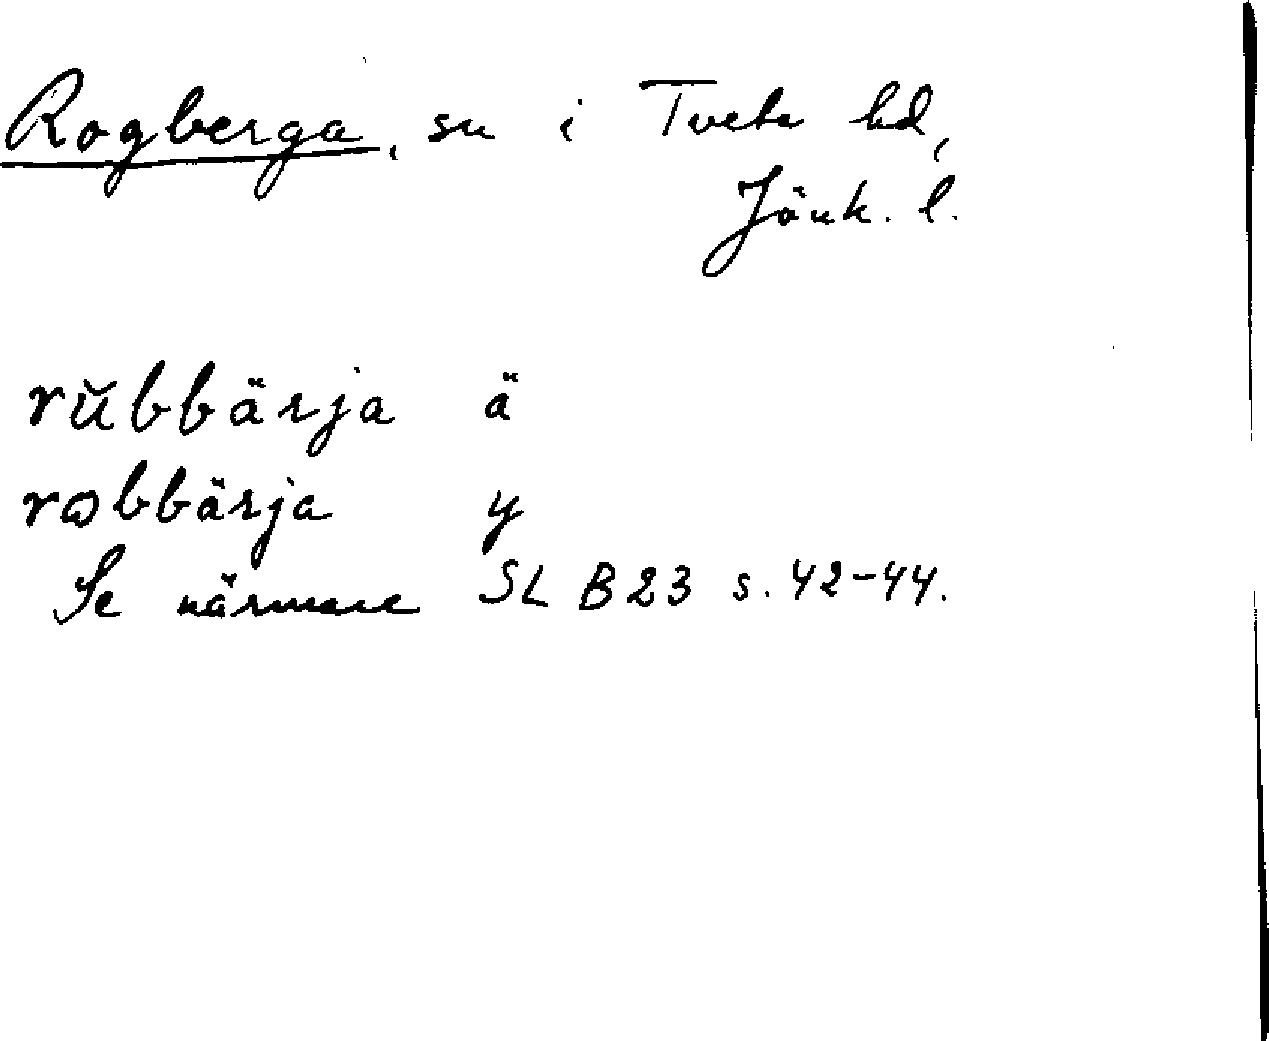 Rogberga, sn i Tveta hd,
Jönk. l.
rŭbbärja ä
rꞷbbärja y
Se närmare SL B23 s. 42-44.